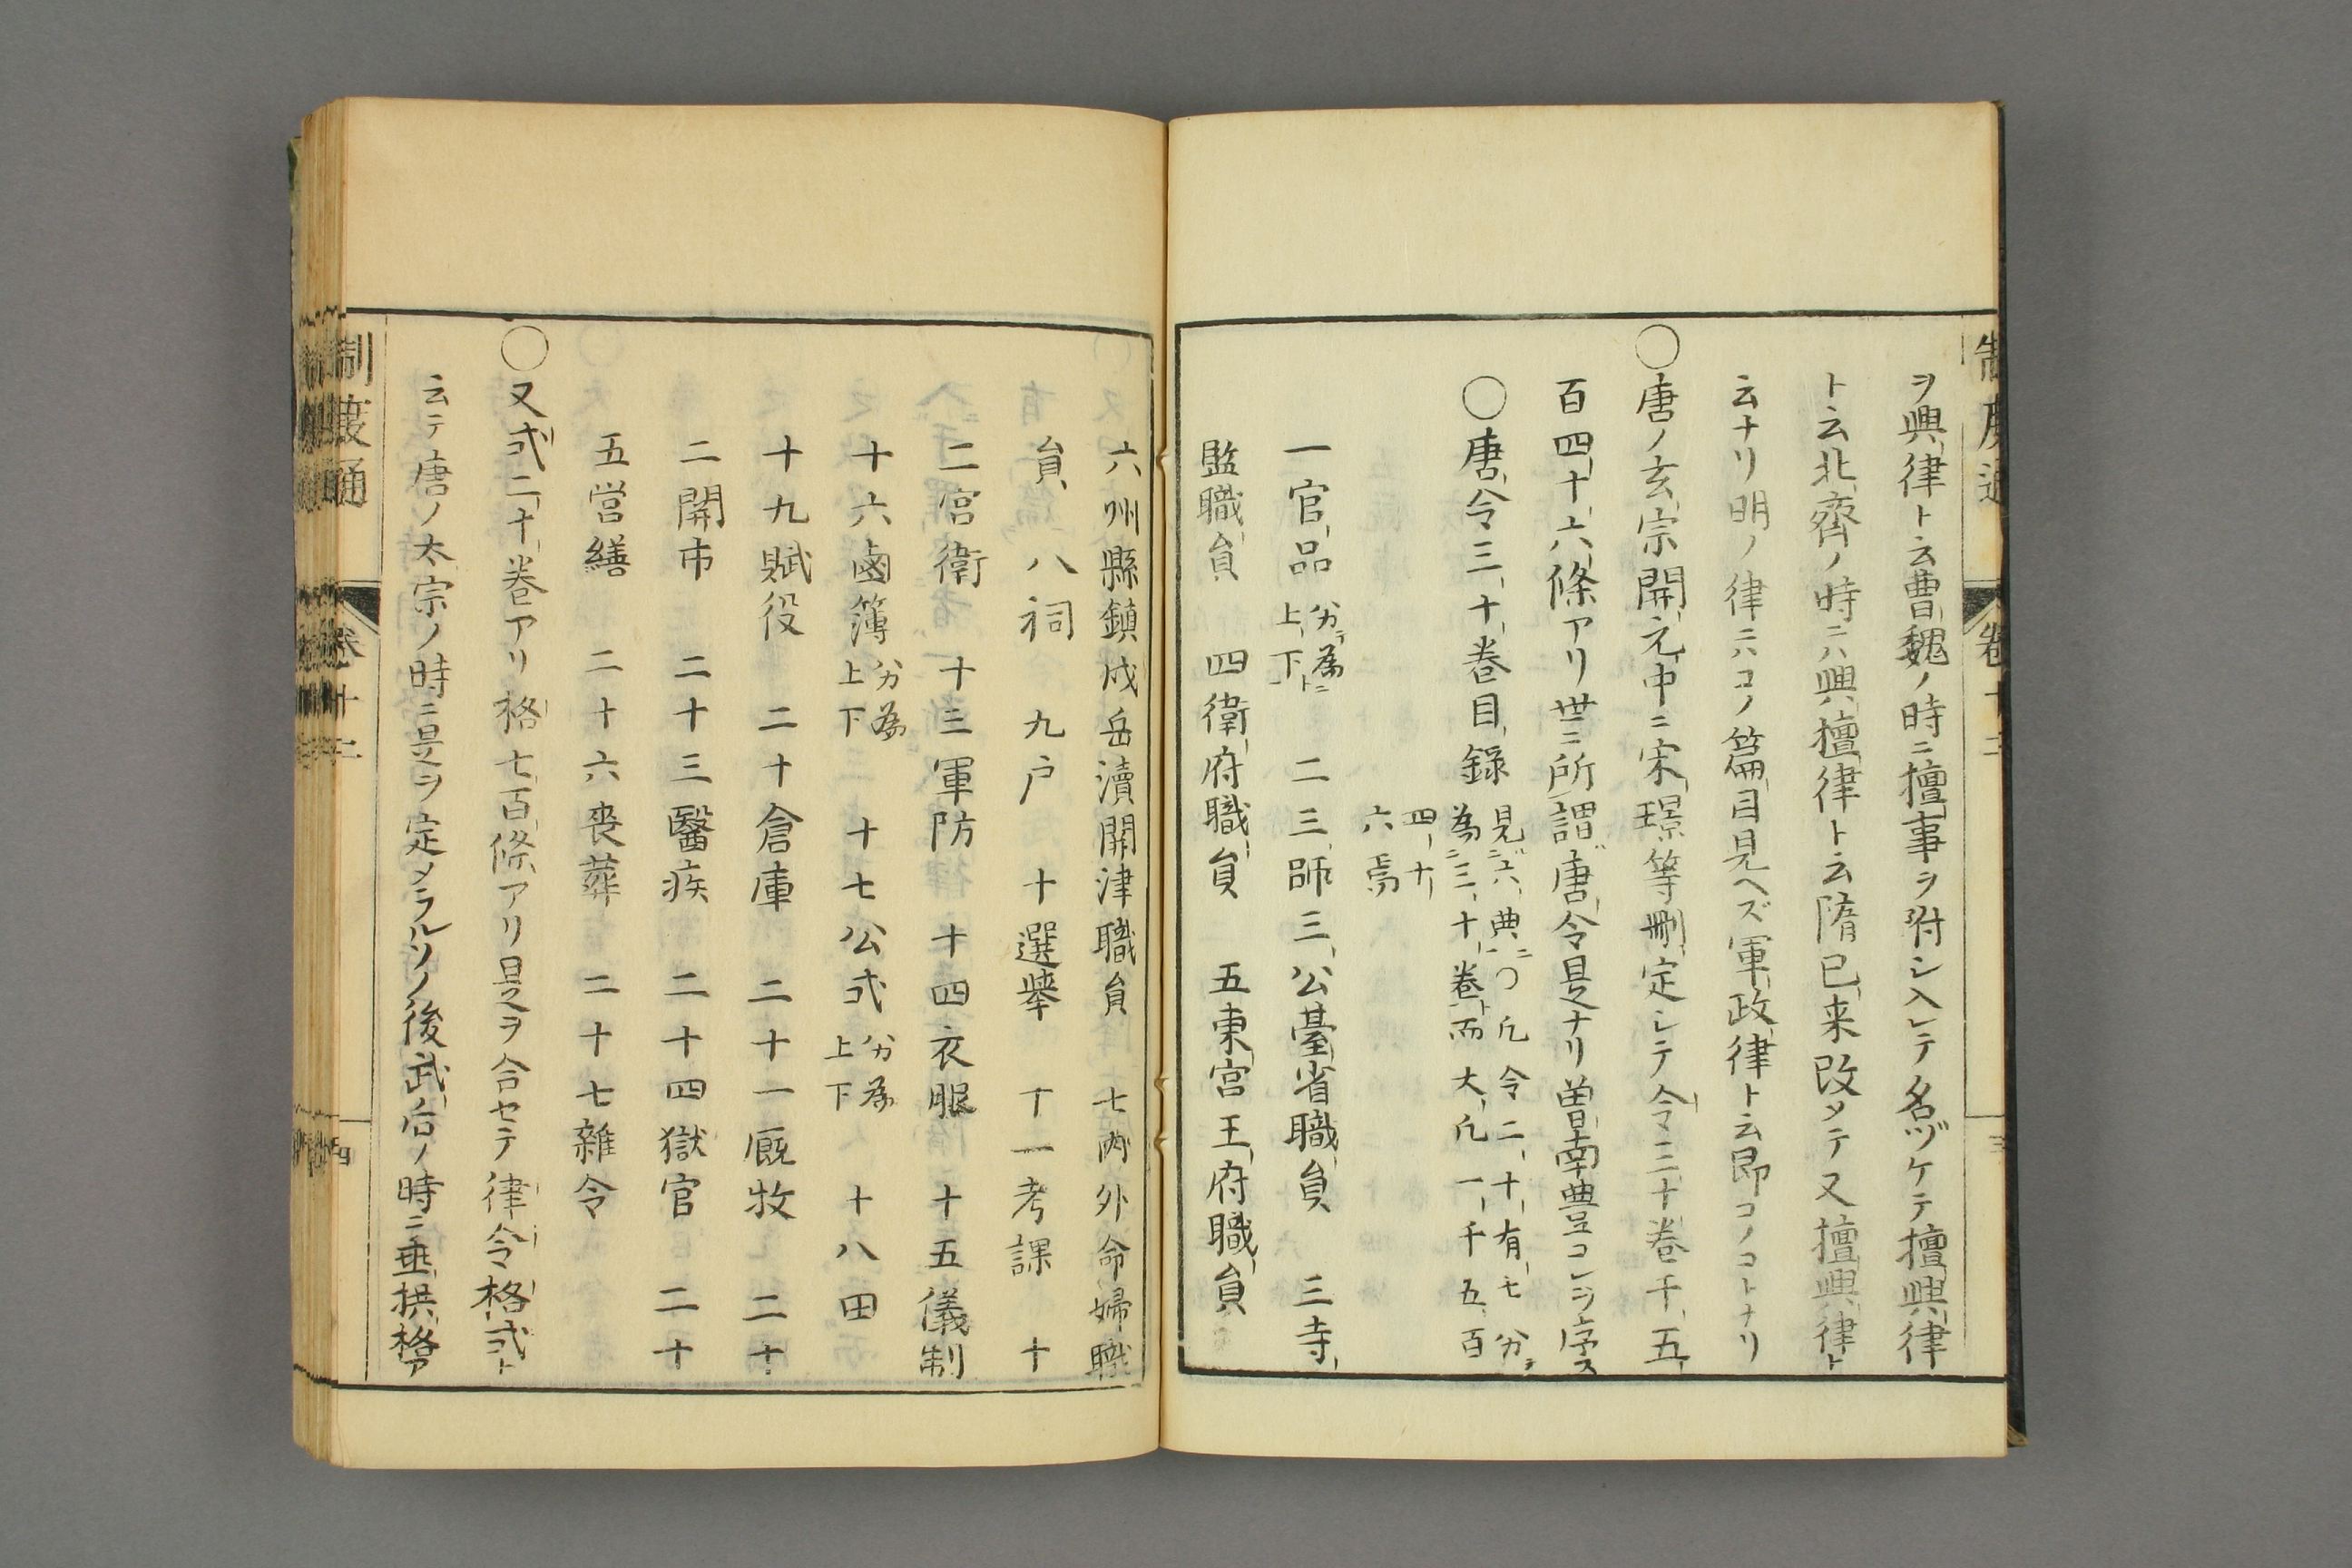 ヲ興律ト云曹魏ノ時ニ擅事ヲ附シ入レテ名ヅケテ擅興律
ト云北齊ノ時ニハ興擅律ト云隋已来改メテ又擅興律ト
云ナリ明ノ律ニハコノ篇目見ヘズ軍政律ト云即コノコトナリ
〇唐ノ玄宗開元中ニ宋璟等刪定シテ令三十巻千五
百四十六條アリ世ニ所謂唐令是ナリ曽南豊コレヲ序ス
〇唐令三十巻目録
見ユ六典ニ〇凡令二十有七分テ
為ニ三十巻ト而大凡一千五百
四十
六焉
一官品
分テ為ニ
上下ト
二三師三公臺省職員 三寺
監職員 四衛府職員 五東宮王府職員
六州縣鎮戍岳瀆開津職員 七内外命婦職
員 八祠 九户 十選擧 十一考課 十
二宮衛 十三軍防 十四衣服 十五儀制
十六鹵簿
分為
上下
十七公式
分為
上下
十八田
十九賦役 二十倉庫 二十一厩牧 二十
二開市 二十三醫疾 二十四獄官 二十
五営繕 二十六喪葬 二十七雜令
〇又式二十巻アリ格七百條アリ是ヲ合セテ律令格式ト
云テ唐ノ太宗ノ時ニ是ヲ定メラルソノ後武后ノ時ニ垂拱格ア
制度通
巻十二
四